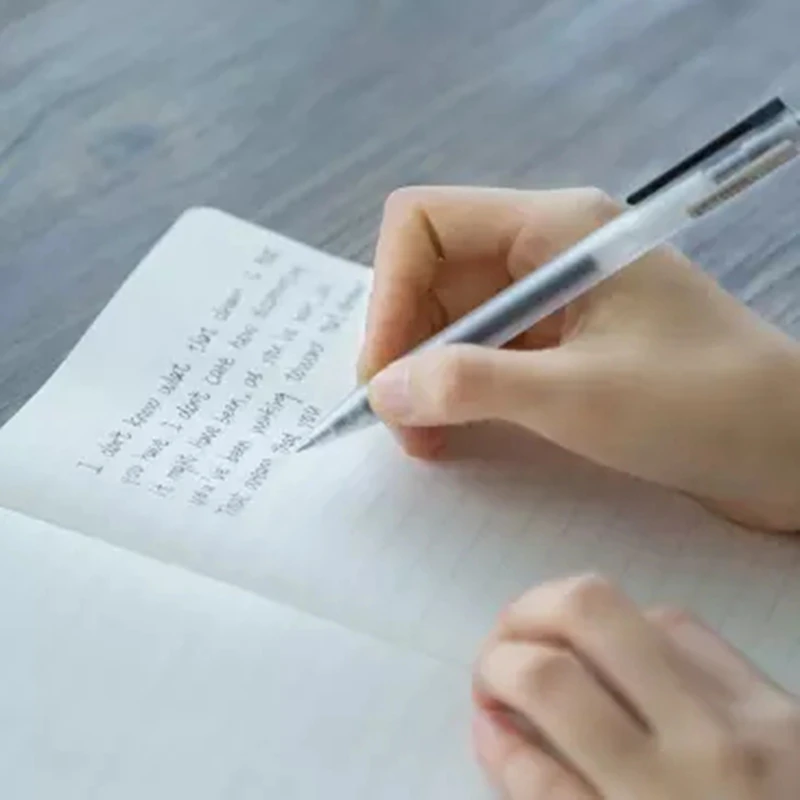 I don't know what that dream is that
you have, I don't care how disappointing
it might have been, as you've been
you've been working toward that
that dream that you